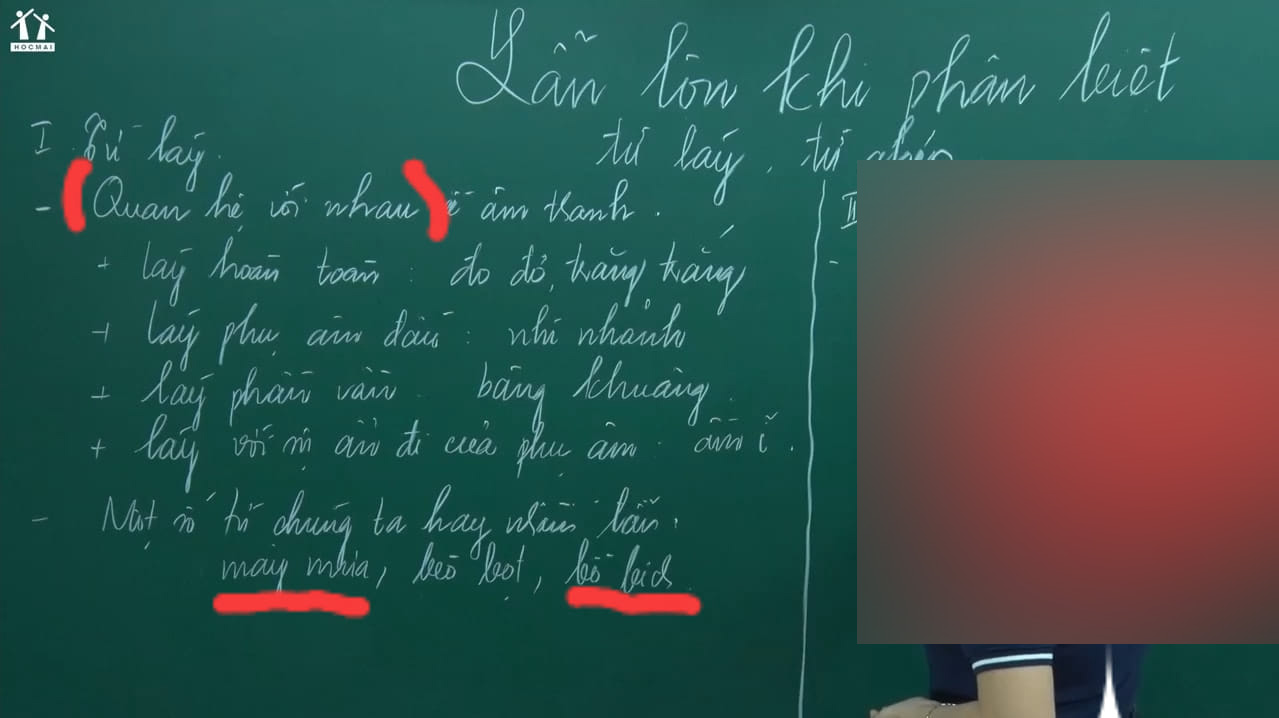 HOCMAI
Lẫn lộn khi phân biệt
từ láy, từ ghép
I. Từ láy.
- Quan hệ với nhau về âm thanh.
+ láy hoàn toàn: đo đỏ, trăng trắng
+ láy phụ âm đầu: nhí nhảnh
+ láy phần vần: bâng khuâng.
+ láy với sự ẩn đi của phụ âm: ầm ĩ.
- Một số từ chúng ta hay nhầm lẫn:
may mưa, bèo bọt,
II
-